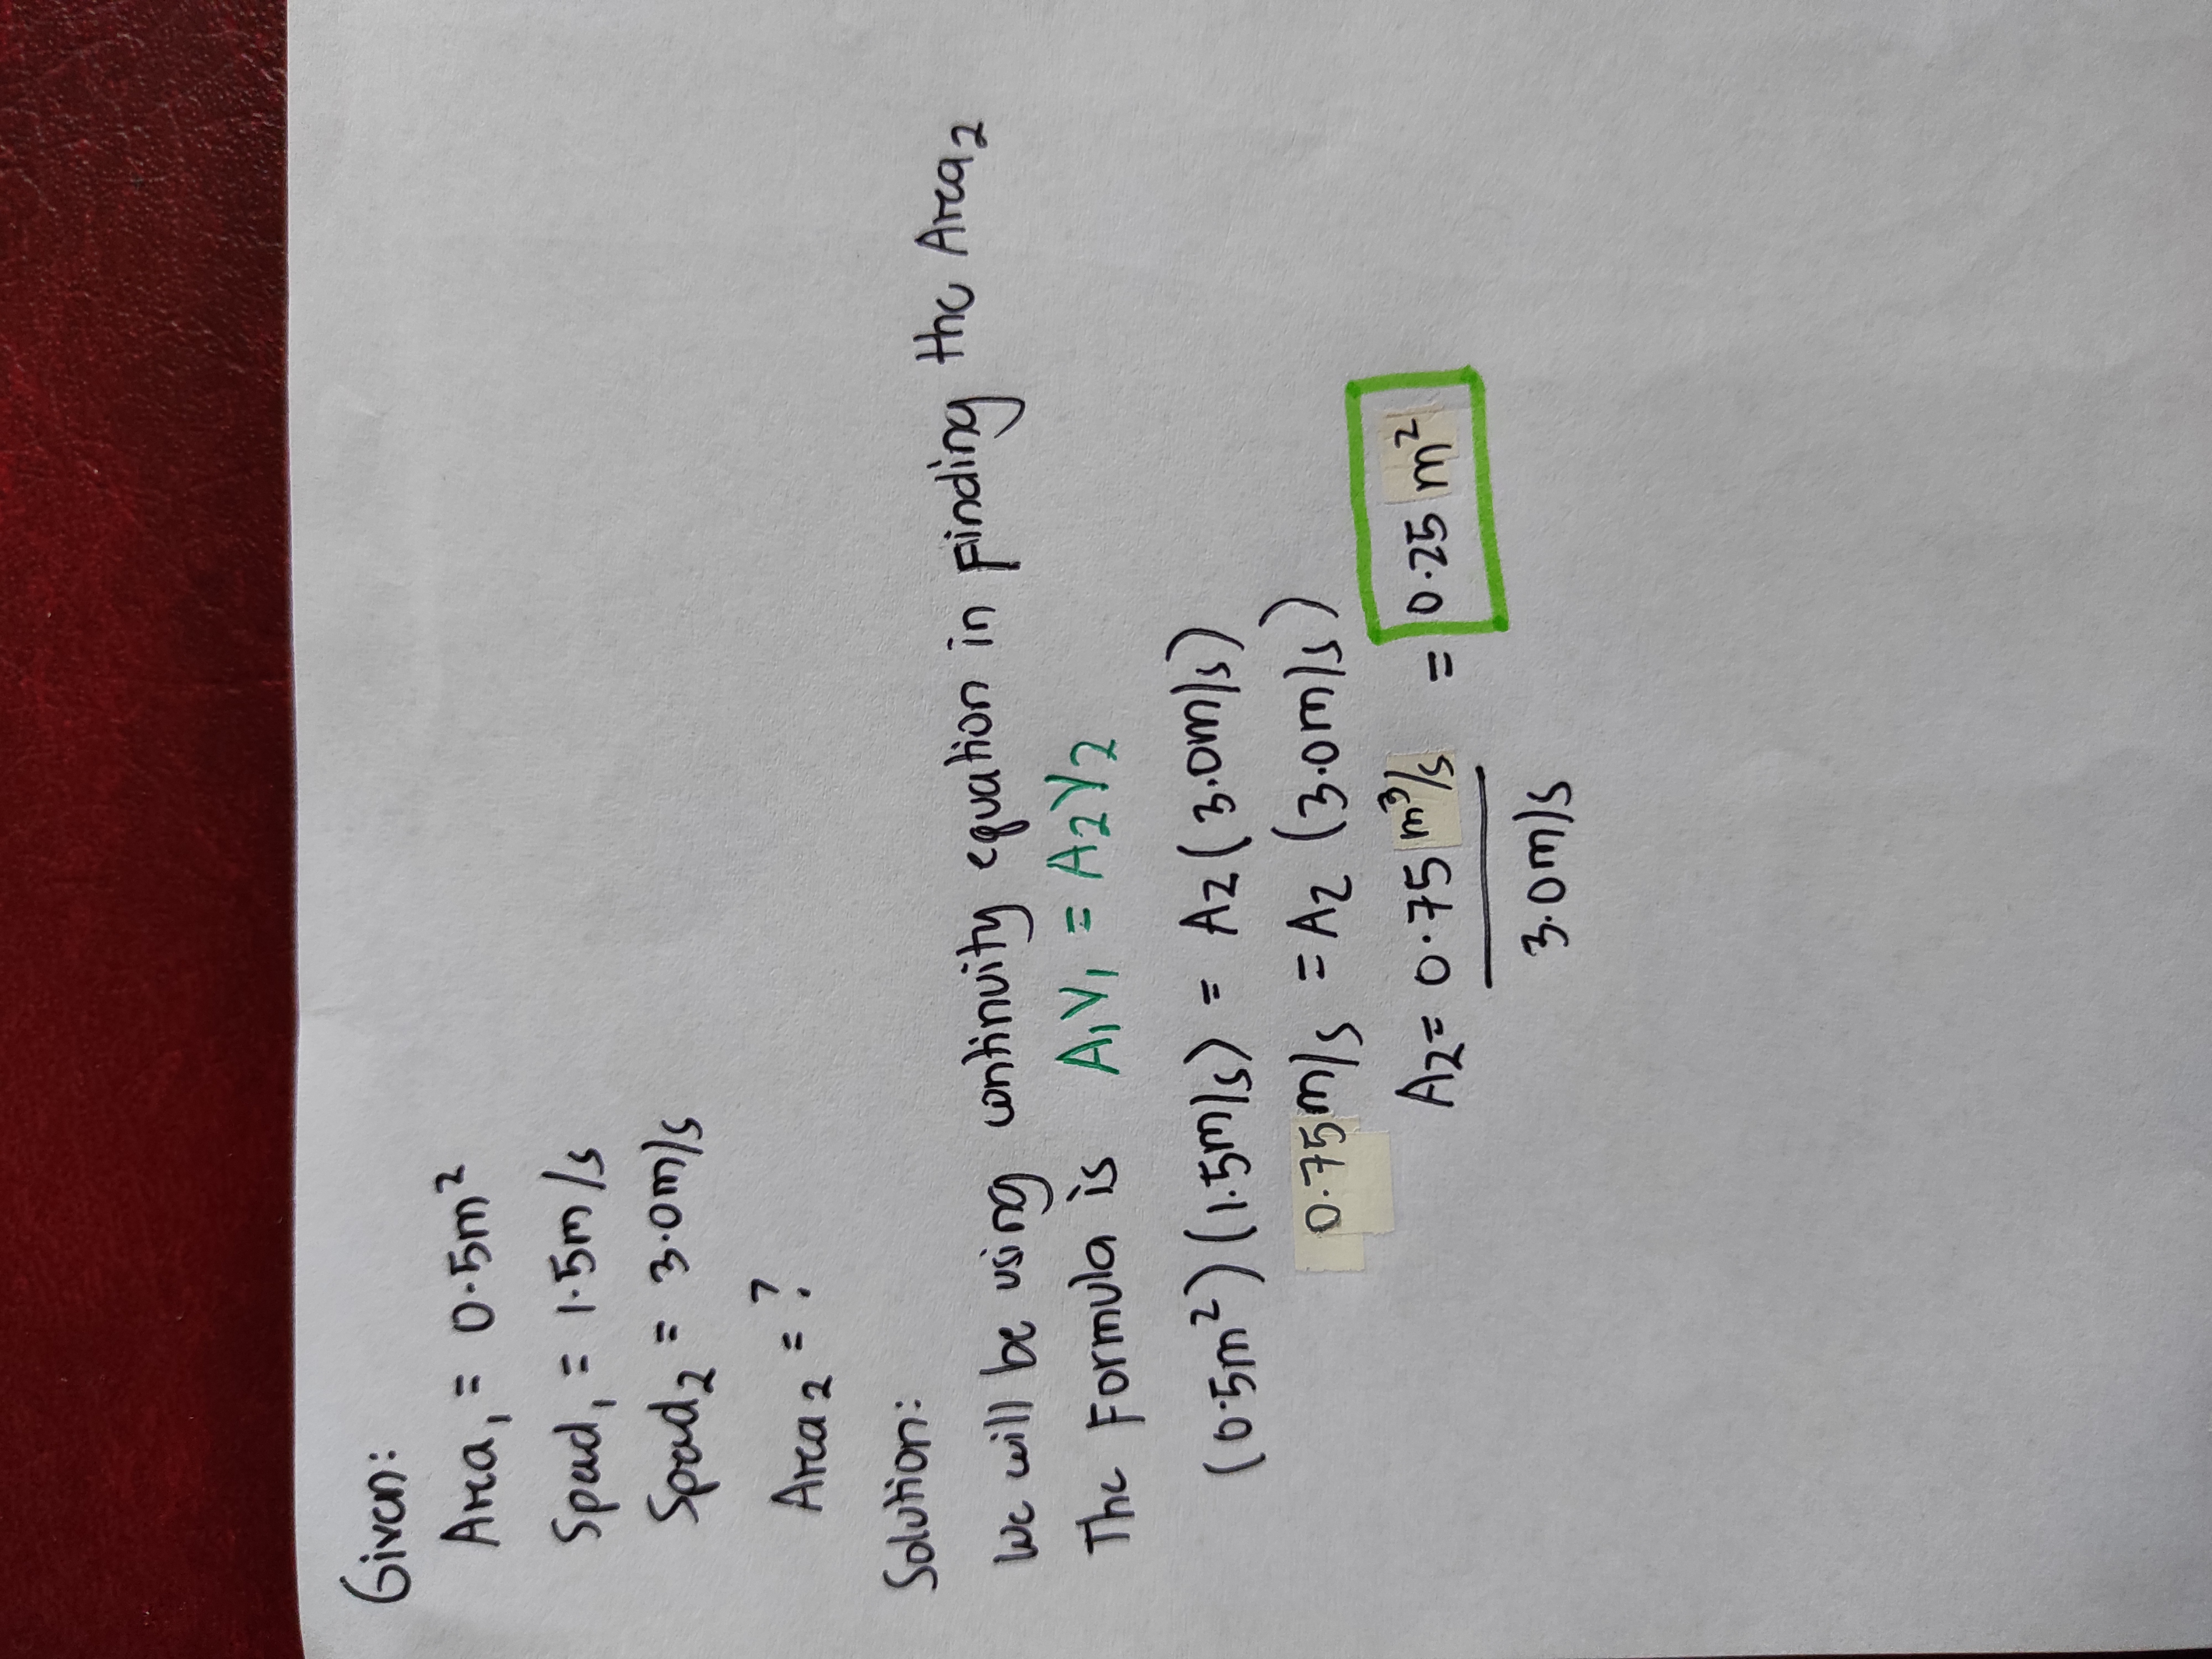 Given:
Area₁ = 0.5m²
Speed₁ = 1.5m/s
Speed₂ = 3.0m/s
Area₂ = ?
Solution:
We will be using continuity equation in Finding the Area₂
The Formula is A₁V₁ = A₂V₂
(0.5m²)(1.5m/s) = A₂(3.0m/s)
0.75m/s = A₂ (3.0m/s)
A₂ = 0.75 m³/s = 0.25 m²
3.0m/s